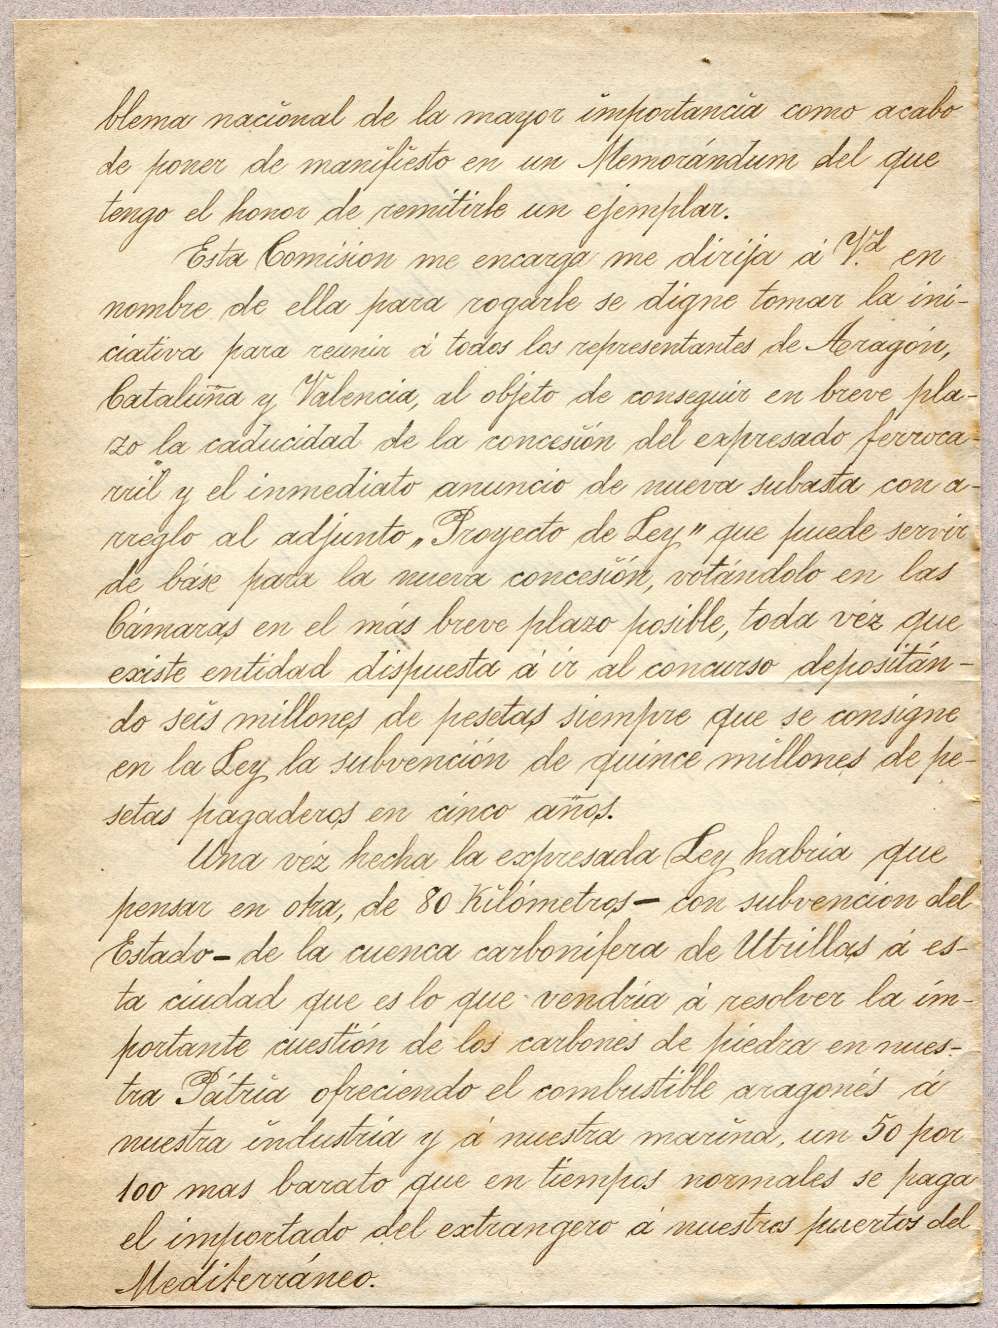 blema nacional de la mayor importancia como acabo
de poner de manifiesto en un Memorándum del que
tengo el honor de remitirle un ejemplar.
Esta Comision me encarga me dirija á V.d en
nombre de ella para rogarle se digne tomar la ini-
ciativa para reunir á todos los representantes de Aragón,
Cataluña y Valencia, al objeto de conseguir en breve pla-
zo la caducidad de la concesión del expresado ferroca-
rril y el inmediato anuncio de nueva subasta con a-
rreglo al adjunto „Proyecto de Ley" que puede servir
de báse para la nueva concesión, votándolo en las
Cámaras en el más breve plazo posible, toda véz que
existe entidad dispuesta á ir al concurso depositán-
do seis millones de pesetas siempre que se consigne
en la Ley la subvención de quince millones de pe-
setas pagaderos en cinco años.
Una véz hecha la expresada Ley habria que
pensar en otra, de 80 Kilómetros - con subvencion del
Estado - de la cuenca carbonífera de Utrillas á es-
ta ciudad que es lo que vendría á resolver la im-
portante cuestión de los carbones de piedra en nues-
tra Pátria ofreciendo el combustible aragonés á
nuestra industria y á nuestra marina, un 50 por
100 mas barato que en tiempos normales se paga
el importado del extrangero á nuestros puertos del
Mediterráneo.